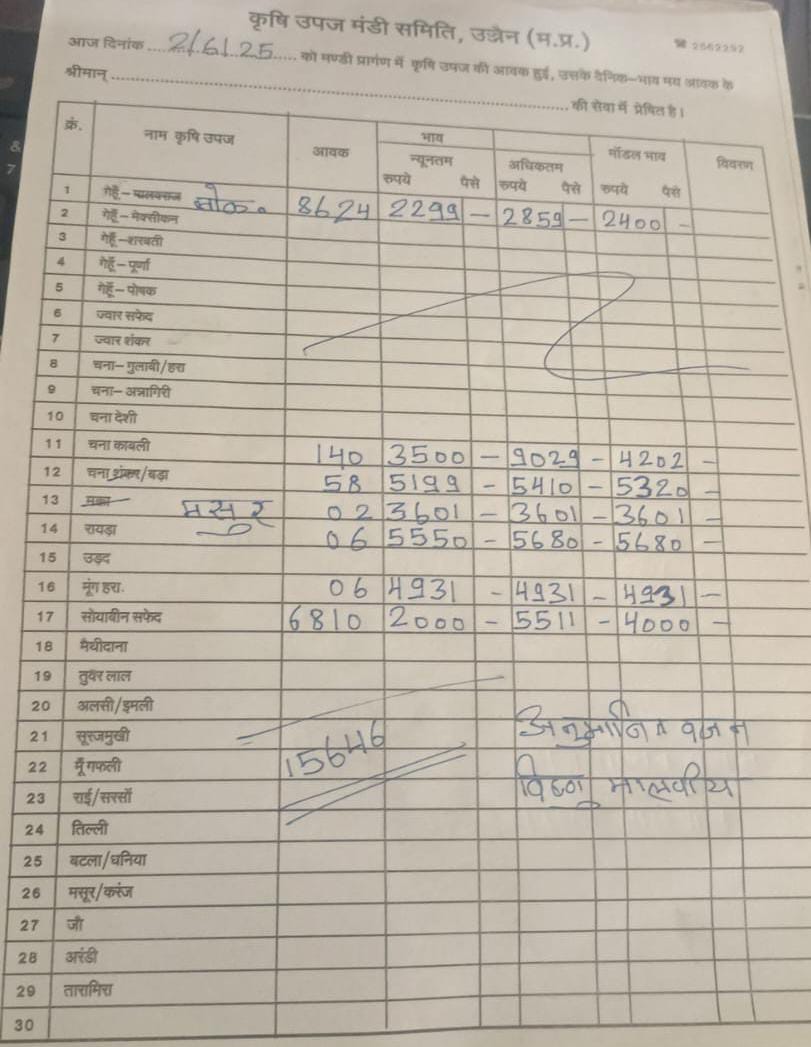 कृषि उपज मंडी समिति, उज्जैन (म.प्र.)
☎ 2562292
आज दिनांक ....2/6/25..... को मण्डी प्रागंण में कृषि उपज की आवक हुई, उसके दैनिक-भाव मय आवक के
श्रीमान् ........ की सेवा में प्रेषित है।
क्रं. नाम कृषि उपज आवक भाव मॉडल भाव विवरण
न्यूनतम अधिकतम
रुपये पैसे रुपये पैसे रुपये पैसे
1 गेहूँ-मालवराज लोक. 8624 2299 - 2859 - 2400 -
2 गेहूँ-मेक्सीकन
3 गेहूँ-शरबती
4 गेहूँ-पूर्णा
5 गेहूँ-पोषक
6 ज्वार सफेद
7 ज्वार शंकर
8 चना-गुलाबी/हरा
9 चना-अन्नागिरी
10 चना देशी
11 चना काबली 140 3500 - 9029 - 4202 -
12 चना शंकर/बड़ा 58 5199 - 5410 - 5320 -
13 मक्का मसुर 02 3601 - 3601 - 3601 -
14 रायड़ा 06 5550 - 5680 - 5680 -
15 उड़द
16 मूंग हरा. 06 4931 - 4931 - 4931 -
17 सोयाबीन सफेद 6810 2000 - 5511 - 4000 -
18 मैथीदाना
19 तुवर लाल
20 अलसी/इमली
21 सूरजमुखी अनुमानित वजन
22 मूँगफली 15646
23 राई/सरसों विष्णु मालवीय
24 तिल्ली
25 बटला/धनिया
26 मसूर/करंज
27 जौ
28 अरंडी
29 तारामिरा
30